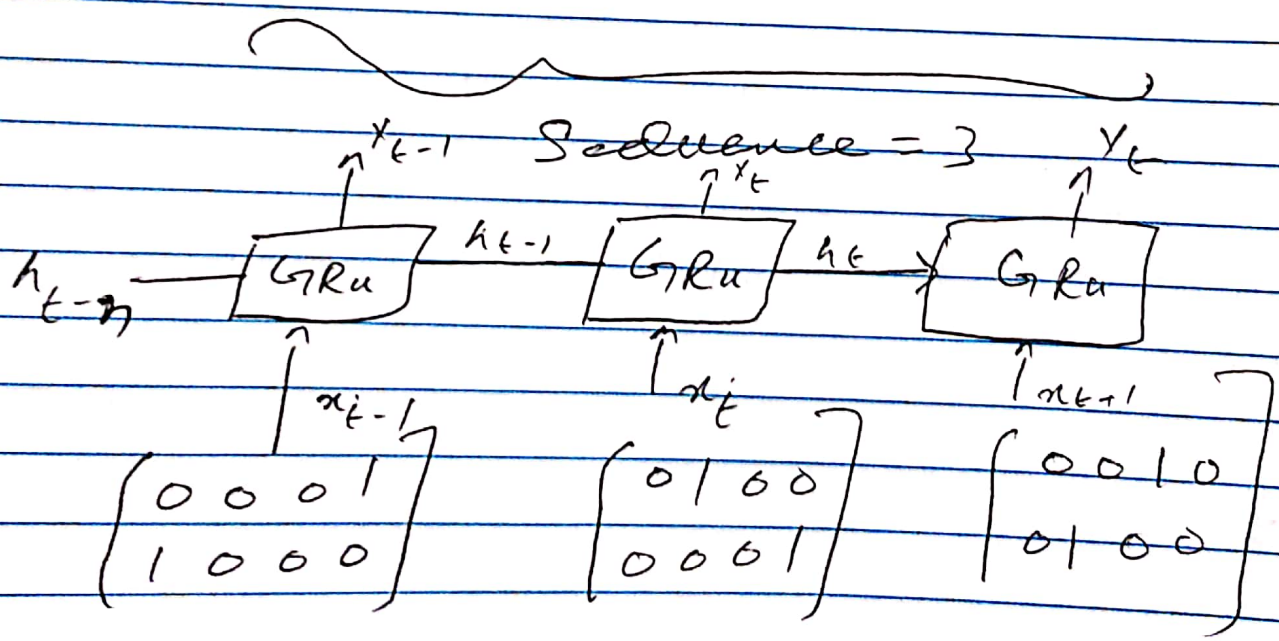 Sequence = 3
Y_{t-1} Y_t Y_t
h_{t-n} GRU h_{t-1} GRU h_t GRU
x_{t-1} x_t x_{t+1}
0 0 0 1 0 1 0 0 0 0 1 0
1 0 0 0 0 0 0 1 0 1 0 0